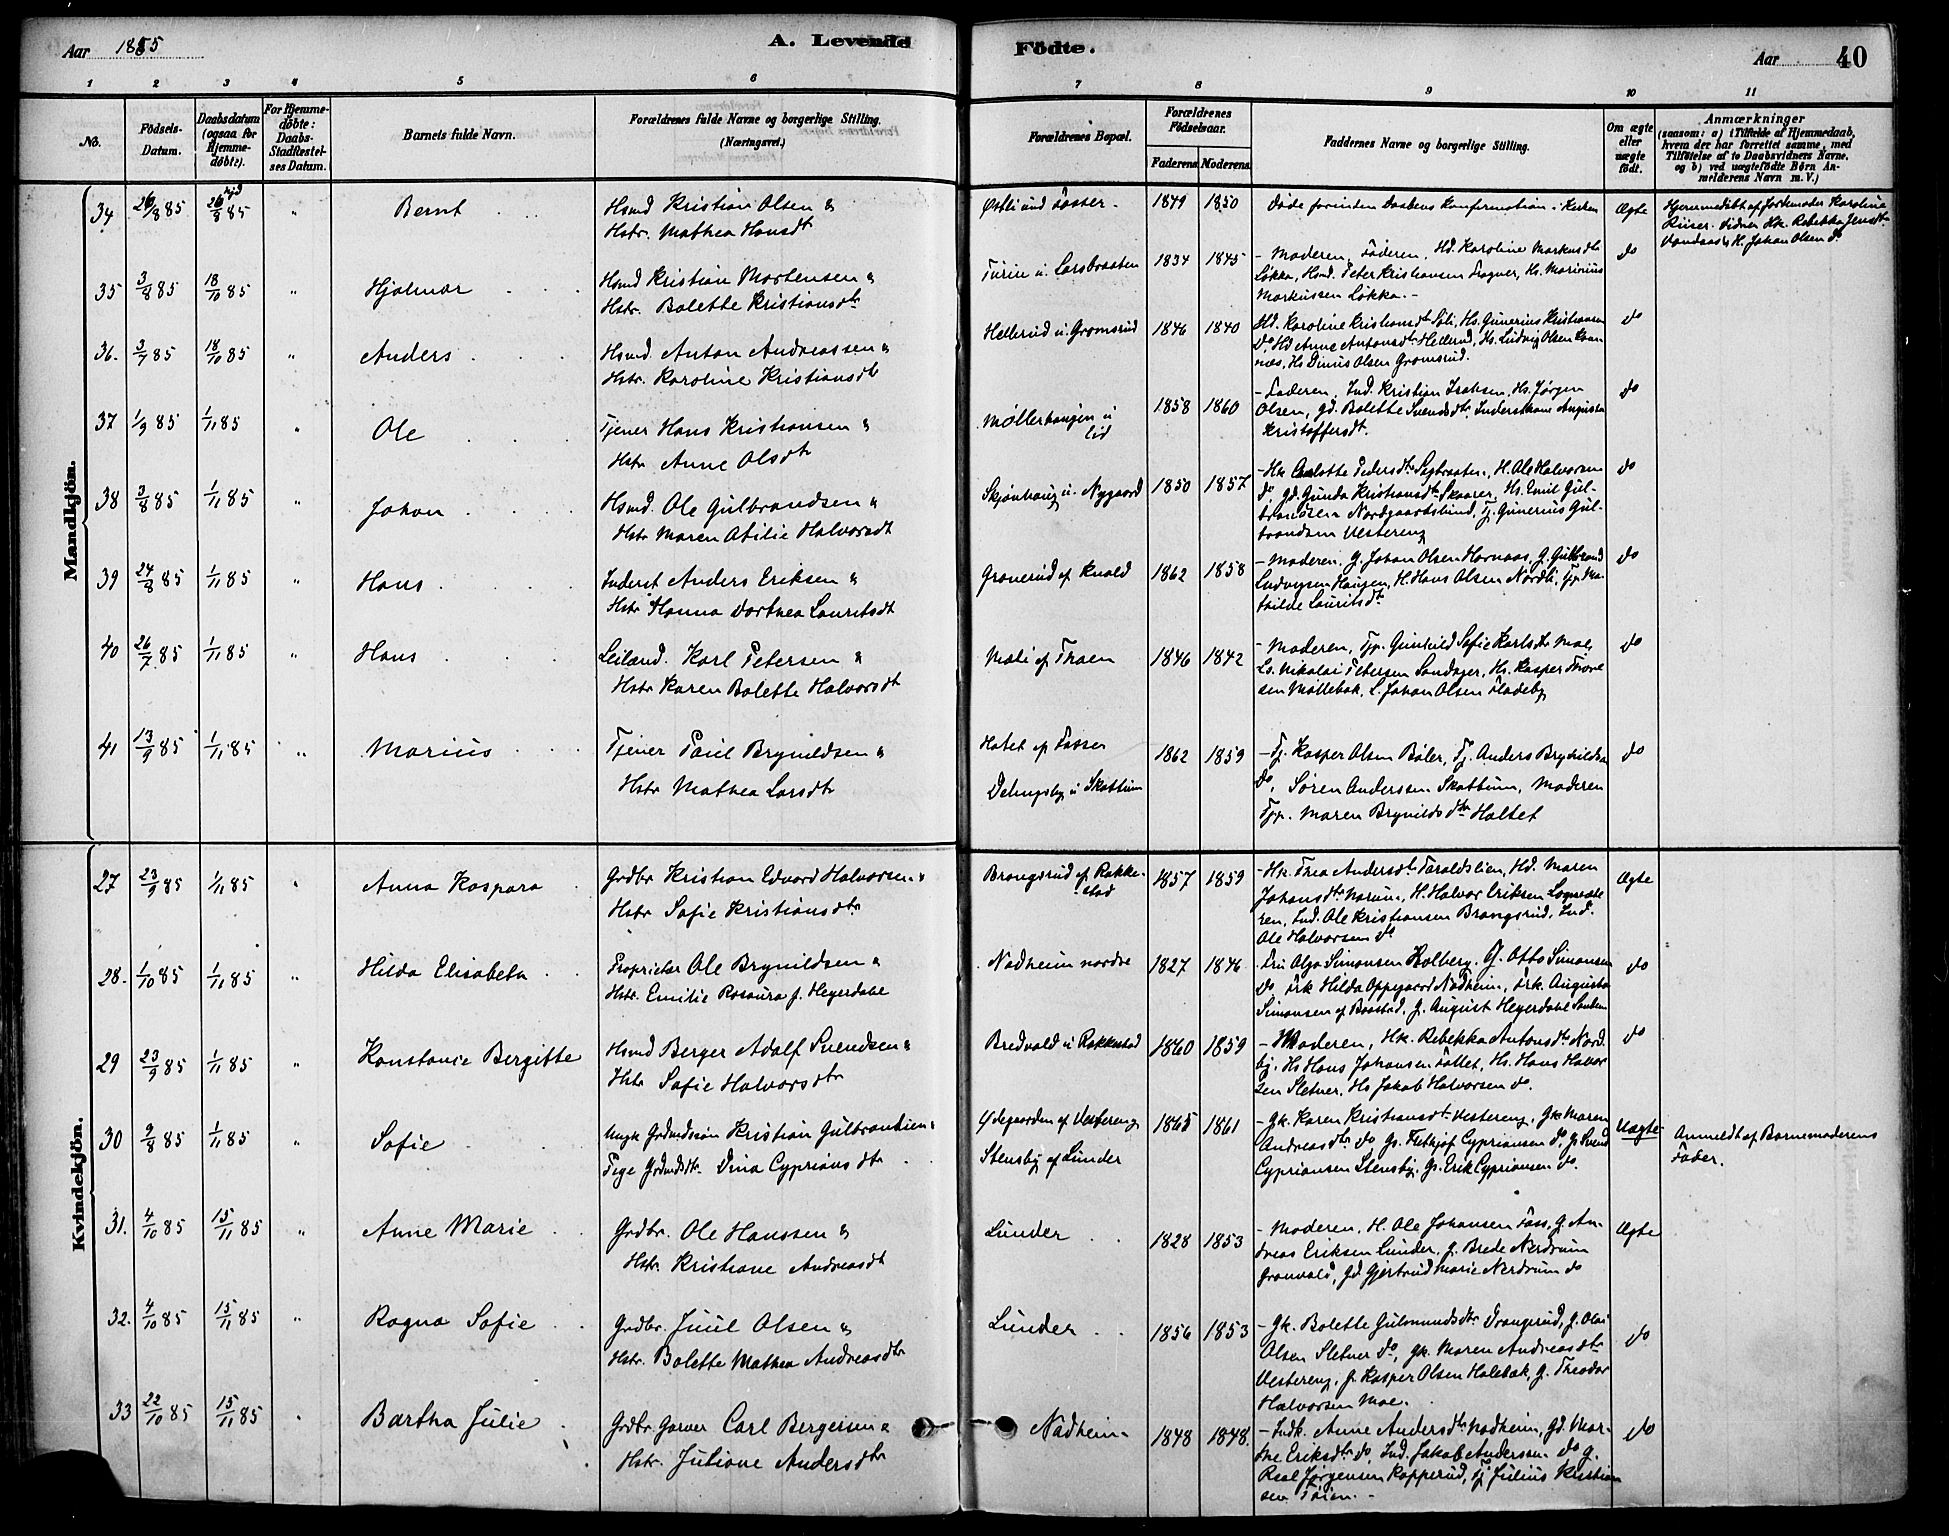 Aar 1885
A. Levende
Födte.
Aar
40
1 2 3 4 5 6 7 8 9 10 11
No.
Födsels-Datum.
Daabsdatum (ogsaa for Hjemme-döbte).
For Hjemme-döbte: Daabs-Stadfæstel-ses Datum.
Barnets fulde Navn.
Forældrenes fulde Navne og borgerlige Stilling. (Næringsvei.)
Forældrenes Bopæl.
Forældrenes Födselsaar.
Faderens. Moderens.
Faddernes Navne og borgerlige Stilling.
Om ægte eller uægte födt.
Anmærkninger (saasom: a) i Tilfælde af Hjemmedaab, hvem der har forrettet samme, med Tilföielse af to Daabsvidners Navne, og b) ved uægtefödte Börn An-melderens Navn m. V.)
Mandkjön.
34 26/8 85 26/8 85 " Bernt
Hsmd Kristian Olsen &
Hstr. Mathea Hansdt
Østli und Fosser. 1849 1850 Døde forinden Daabens Konfirmation i Kirken Ægte
Hjemmedøbt af Jordemoder Karoline
Riiser. Vidner Hk. Rebekka Jensdt.
Vandaas & H. Johan Olsen do
35 3/8 85 18/10 85 " Hjalmar
Hsmd Kristian Mortensen &
Hstr. Bolette Kristiansdtr
Turin u. Larsbraaten 1834 1845 - Moderen, Faderen, Hd. Karoline Markusdtr do
Løkka, Hsmd. Peter Kristiansen Fragner, Hs. Marinius
Markussen Løkka. -
36. 3/7 85 18/10 85 " Anders
Hsmd. Anton Andreassen &
Hstr. Karoline Kristiansdtr
Hellerud u. Gromsrud 1846 1840 Hd. Karoline Kristiansdt Sæli, Hs. Gunerius Kristiansen do
do, Hd Anne Antonsdtr Hellerud, Hs. Ludvig Olsen
næs, Hs Dinus Olsen Gromsrud.
37 1/9 85 1/11 85 " Ole
Tjener Hans Kristiansen &
Hstr Anne Olsdtr
Møllerhaugen u
Lid
1858 1860 - Faderen, Ind. Kristian Isaksen, Hs. Jørgen do
Olsen, Gd. Bolette Svendsdtr, Inderstkone Augusta
Kristoffersdt.
38 3/8 85 1/11 85 " Johan
Hsmd. Ole Gulbrandsen &
Hstr Maren Otilie Halvorsdt
Skjønhaug u. Nygaard 1850 1857 - Hk. Pedersdtr, H. Ole Halvorsen do
do, Gd. Gunda Kristiansdtr Skaarer, Hs. Emil Gul-
brandsen Nordgaardslund, Tj. Gunerius Gul-
brandsen Vestereng
39 24/8 85 1/11 85 " Hans
Inderst Anders Eriksen &
Hstr Hanna Dorthea Lauritsdt
Gronerud af Kvald 1862 1858 - Moderen, G. Johan Olsen Hornaas, G. Gulbrand do
Ludvigsen Haugen, H. Hans Olsen Nordli, Tjp. Ma-
thilde Lauritsdtr
40 26/7 85 1/11 85 " Hans
Leiland. Karl Petersen &
Hstr Karen Bolette Halvorsdt
Mæli af Thoen 1846 1842 - Moderen, Tjp. Gunhild Sofie Karlsdtr Moe, do
Ls. Nikolai Petersen Sandager, Hs. Kasper
sen Møllebak, L. Johan Olsen Fladeby
41 13/9 85 1/11 85 " Marius
Tjener Paul Brynildsen &
Hstr Mathea Larsdtr
Hotet af Fosser
Delingsby u Skattum
1862 1859 - Tj. Kasper Olsen Bøler, Tj. Anders Brynildsen do
do, Søren Anderssen Skattum, Moderen
Tjp. Maren Brynildsdtr Haltet
Kvindekjön.
27 23/9 85 1/11 85 " Anna Kaspara
Grdbr Kristian Edvard Halvorsen &
Hstr Sofie Kristiansdtr
Brangsrud af Rakke-
stad
1857 1859 - Hk. Thea Andersdtr Taraldslien, Hd. Maren Ægte
Johansdtr Narum, H. Halvor Eriksen
ren, Ind. Ole Kristiansen Brangsrud, Ind.
Ole Halvorsen do
28. 1/10 85 1/11 85 " Hilda Elisabeth
Proprietær Ole Brynildsen &
Hstr. Emilie Rosaura f. Heyerdahl
Nadheim nordre 1827 1846 Fru Olga Simonsen Holberg. G. Otto Simonsen do
do Frk Hilda Oppegaard Nadheim, Frk. Augusta
Simonsen af Baastad, G. August Heyerdahl
29 23/9 85 1/11 85 " Konstance Bergitte
Hsmd Berger Adolf Svendsen &
Hstr Sofie Halvorsdtr
Bredvold u Rakkestad 1860 1859 - Moderen, Hk. Rebekka Antonsdtr Nord- do
by, Hs Hans Johansen Følet, Hs. Hans Halvor
sen Sletner, Hs Jakob Halvorsen do.
30 9/8 85 1/11 85 " Sofie
Ungk Grdmdssøn Kristian Gulbrandsen &
Pige Grdmdsdtr. Dina Cypriansdtr
Ødegaarden af Vestereng
Stensby af Lunder
1865 1861 - Gk. Karen Kristiansdt Vestereng, Gk Maren Uægte
Andreasdtr do Gs. Fethjof Cypriansen do, G. Svend
Cypriansen Stensby, Gs. Erik Cypriansen do.
Anmeldt af Barnemoderens
Fader.
31. 4/10 85 15/11 85 " Anne Marie
Grdbr. Ole Hanssen &
Hstr. Kristiane Andreasdt
Lunder 1828 1853 - Moderen, H. Ole Johansen Foss, G. An- Ægte
dreas Eriksen Lunder, G. Brede Nerdrum
Gronvold, Gd. Gjertrud Marie Nerdrum do
32. 4/10 85 15/11 85 " Ragna Sofie
Grdbr. Juul Olsen &
Hstr. Bolette Mathea Andreasdtr
Lunder 1856 1853 - Gk. Bolette Gulmundsdtr Drangsrud, G. Olai do
Olsen Sletner do, Gk. Maren Andreasdtr
Vestereng, G. Kasper Olsen Holebak, G. Theodor
Halvorsen Moe.
33 22/10 85 15/11 85 " Bertha Julie
Grdbr. Garver Carl Bergersen &
Hstr. Juliane Andersdtr
Nadheim 1848 1848. - Indk. Anne Andersdtr Nadheim, Gd. Mar- do
the Eriksdtr do, Ind. Jakob Anderssen do G.
Real Jørgensen Kopperud, Tj. Julius Kristian
sen Töien. -